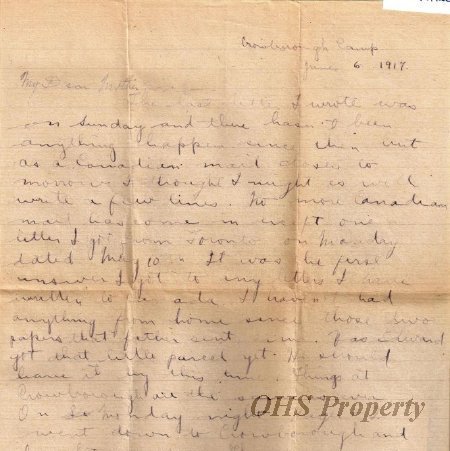 Crowborough Camp
June 6 1917.
My Dear Mother
The last letter I wrote was
on Sunday and there hasn't been
anything happen since then but
as a Canadian mail closes to
morrow I thought I might as well
write a few lines. No more Canadian
mail has come in except one
letter I got from Toronto on Monday
dated May 10th. It was the first
answer I got to any letters I have
written to. I haven't had
anything from home since those two
papers that father sent me.
got that little parcel yet. We should
have it by this time. Things at
Crowborough are the same
On Monday night
I went down to Crowborough and
OHS Property